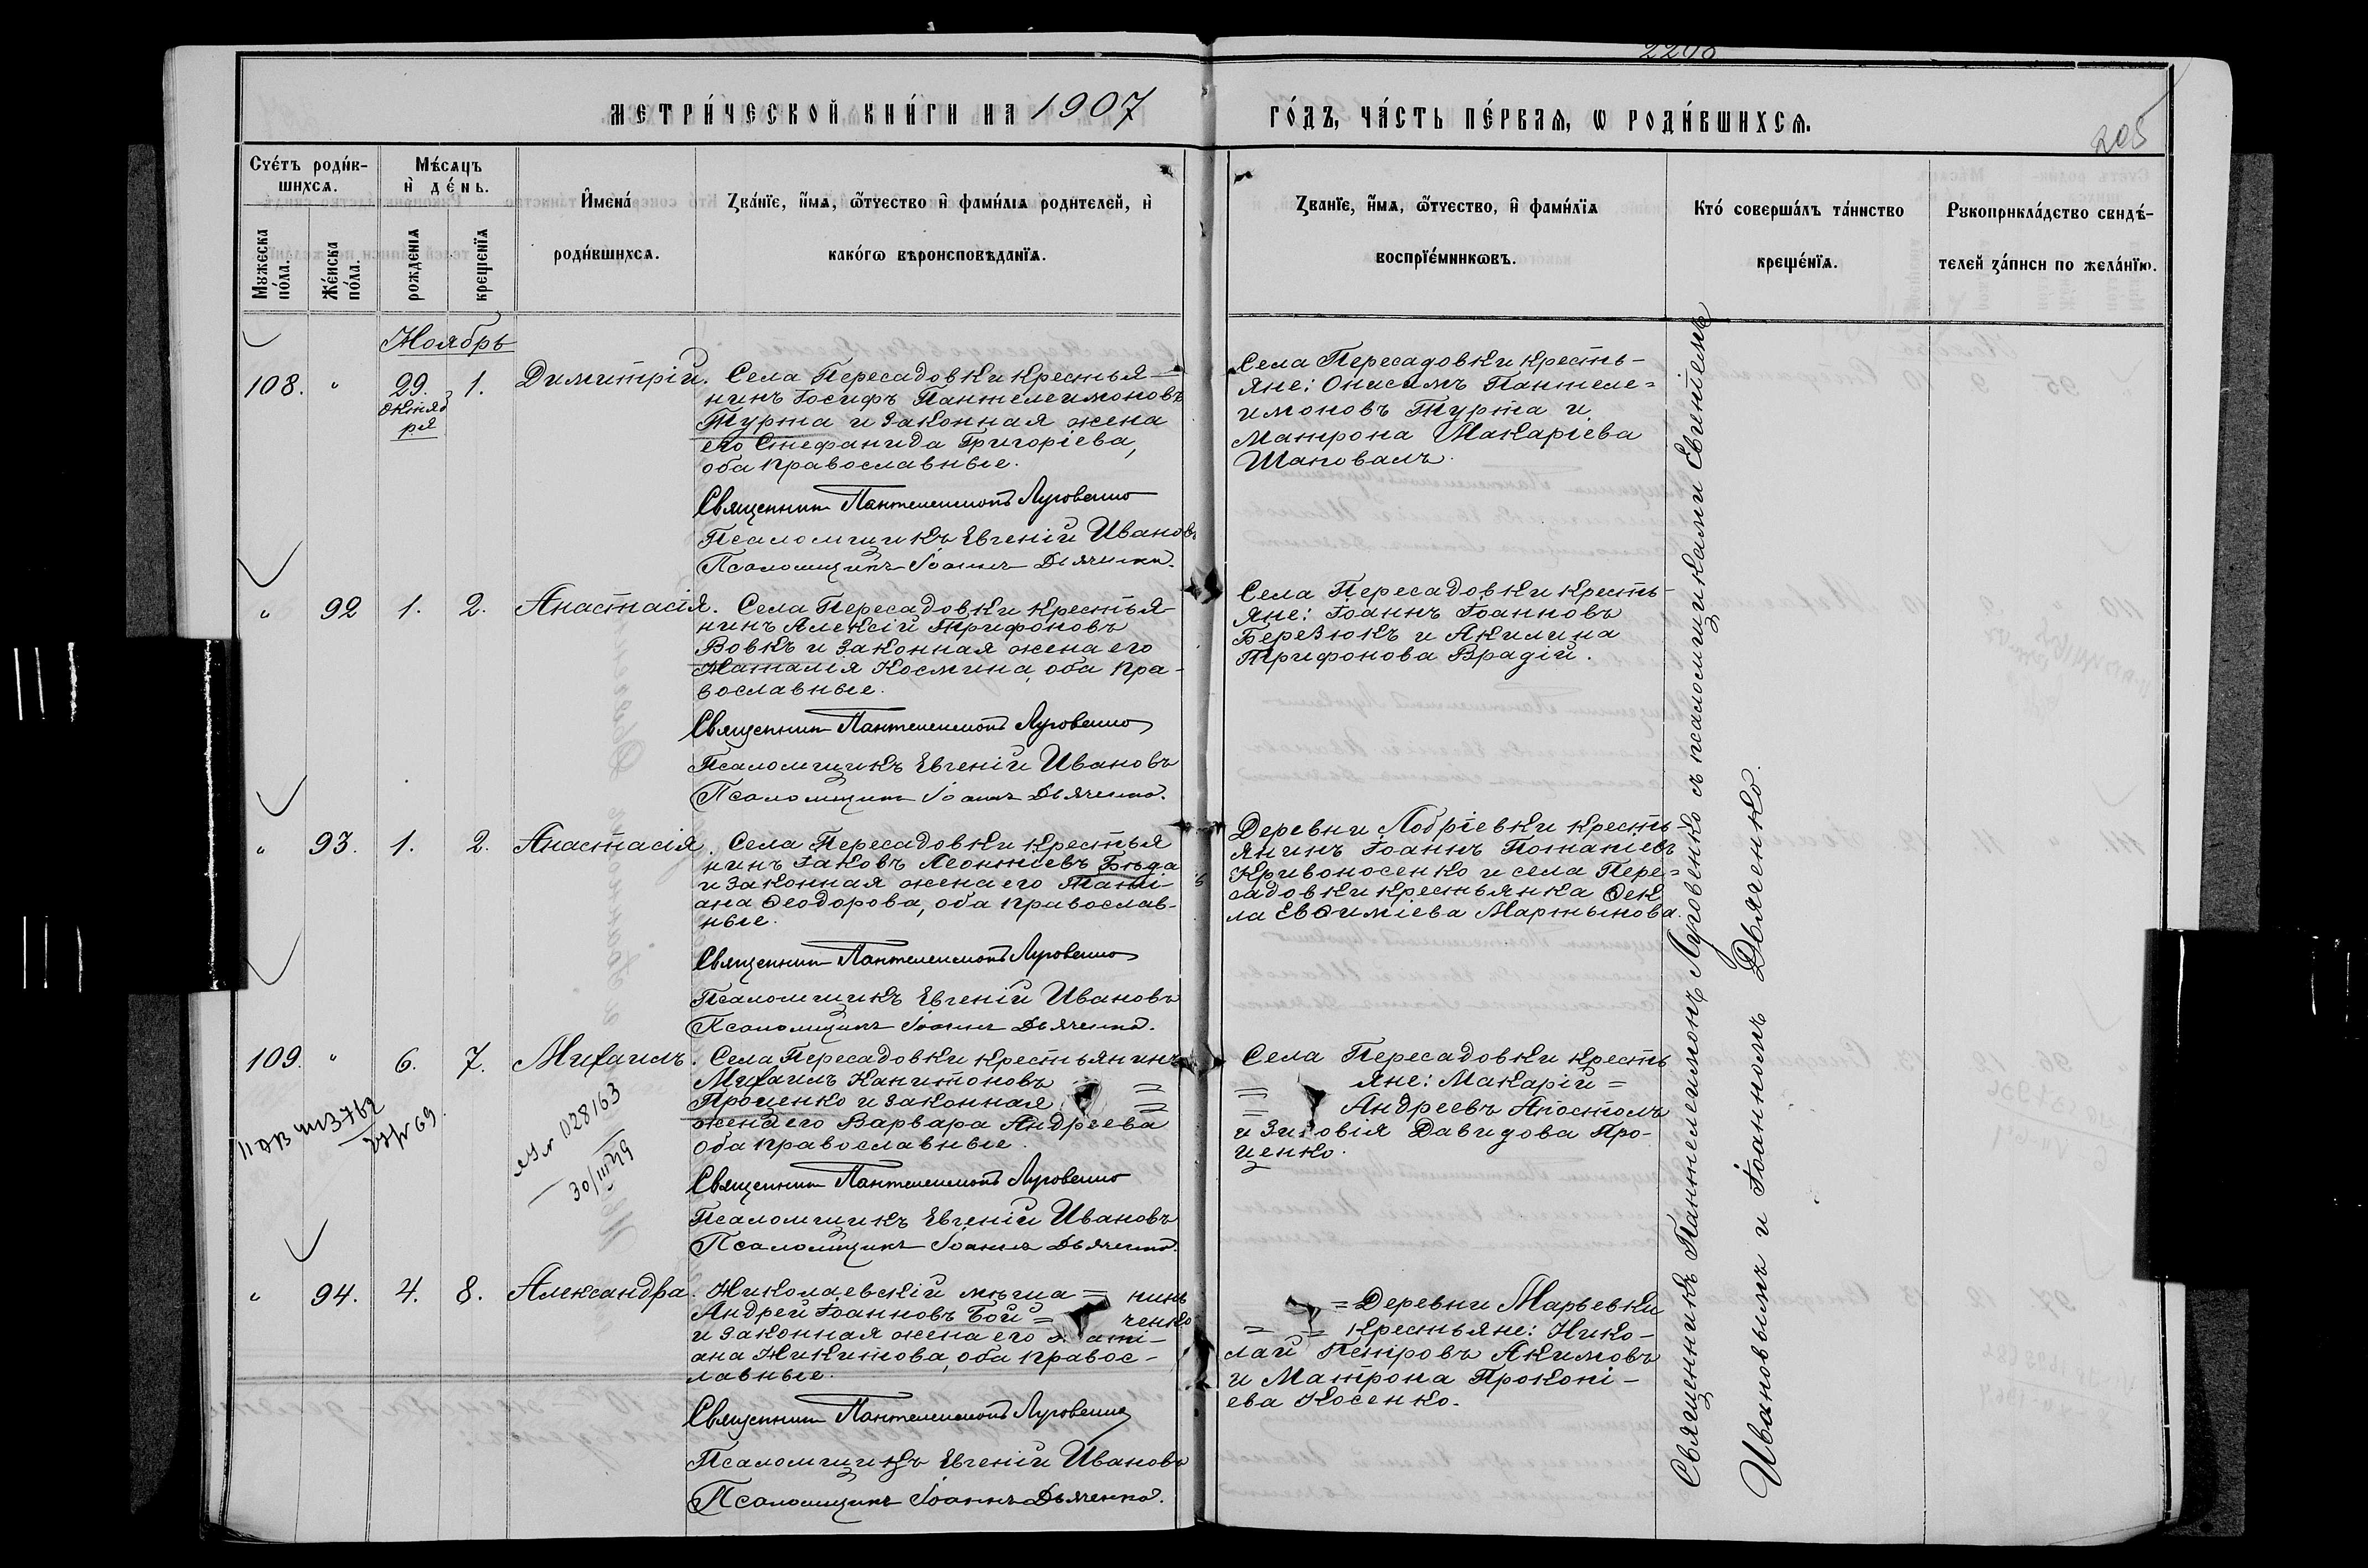 2298
МЕТРИ́ЧЕСКОЙ КНИ́ГИ НА 1907
ГО́ДЪ, ЧА́СТЬ ПЕ́РВАѦ, Ѡ РОДИ́ВШИХСѦ.
205
Сче́тъ роди́вшихсѧ.
Мѣ́сѧцъ и де́нь.
Имена́ роди́вшихсѧ.
Зва́нїе, и́мѧ, ѻ́тчество и фами́лїѧ родителей, и како́гѡ вѣроисповѣданїѧ.
Зва́нїе, и́мѧ, ѻ́тчество, и фами́лїѧ воспрїе́мникѡвъ.
Кто́ соверша́лъ та́инство креще́нїѧ.
Рукоприкла́дство свидѣ́телей за́писи по жела́нїю.
Мужеска по́ла.
Же́нска по́ла.
рожденїѧ
крещенїѧ
Ноябрь
108. " 29. октября 1. Димитрій.
Села Пересадовки крестья-
нинъ Іосифъ Пантелеимоновъ
Турта и законная жена
его Стефанида Григоріева,
оба православные.
Священникъ Пантелеимонъ Луговенко
Псаломщикъ Евгеній Ивановъ
Псаломщикъ Іоаннъ Дьяченко.
Села Пересадовки кресть-
яне: Онисимъ Пантеле-
имоновъ Турта и
Матрона Макаріева
Шаповалъ.
" 92 1. 2. Анастасія.
Села Пересадовки крестья-
нинъ Алексій Трифоновъ
Вовкъ и законная жена его
Наталія Космина, оба пра-
вославные.
Священникъ Пантелеимонъ Луговенко
Псаломщикъ Евгеній Ивановъ
Псаломщикъ Іоаннъ Дьяченко.
Села Пересадовки кресть-
яне: Іоаннъ Іоанновъ
Березюкъ и Акилина
Трифонова Врадій.
" 93. 1. 2. Анастасія.
Села Пересадовки крестья
нинъ Іаковъ Леонтіевъ Бѣда
и законная жена его Таті-
ана Ѳеодорова, оба православ-
ные.
Священникъ Пантелеимонъ Луговенко
Псаломщикъ Евгеній Ивановъ
Псаломщикъ Іоаннъ Дьяченко.
Деревни Лобріевки кресть-
янинъ Іоаннъ Потапіевъ
Кривоносенко и села Пере-
садовки крестьянка Ѳек
ла Евѳиміева Мартынова.
109. " 6. 7. Михаилъ.
028163
30/III 49
Села Пересадовки крестьянинъ
Михаилъ Капитоновъ =
Проценко и законная =
жена его Варвара Андреева
оба православные.
Священникъ Пантелеимонъ Луговенко
Псаломщикъ Евгеній Ивановъ
Псаломщикъ Іоаннъ Дьяченко.
Села Пересадовки кресть
= яне: Макарій =
= Андреевъ Апостолъ
и Зиновія Давидова Про-
ценко.
" 94. 4. 8. Александра.
Николаевскій мѣща = нинъ
Андрей Іоанновъ Бой = ченко
и законная жена его Таті-
ана Никитова, оба правос-
лавные.
Священникъ Пантелеимонъ Луговенко
Псаломщикъ Евгеній Ивановъ
Псаломщикъ Іоаннъ Дьяченко.
= Деревни Марьевки
= = крестьяне: Нико-
лай Петровъ Акимовъ
и Матрона Прокопі-
ева Косенко.
Священникъ Пантелеимонъ Луговенко съ псаломщиками Евгеніемъ
Ивановымъ и Іоанномъ Дьяченко.